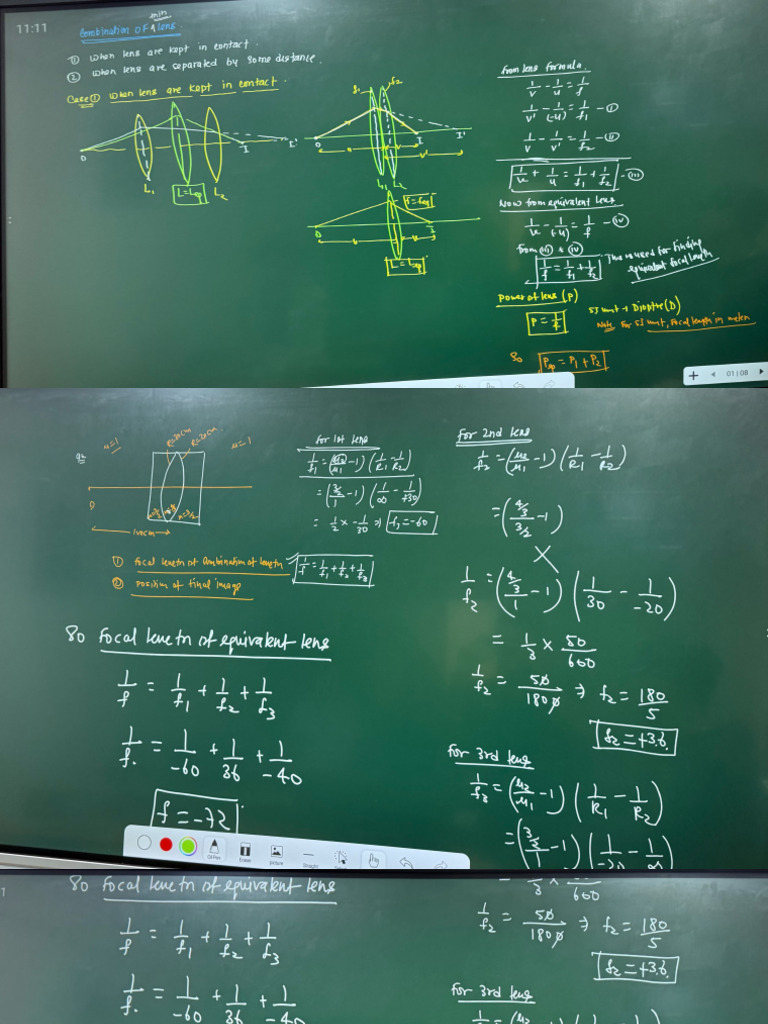 11:11
Combination of thin lens.
① When lens are kept in contact.
② When lens are separated by some distance.
Case ① When lens are kept in contact.
O
L₁
L=Leq
L₂
I
I'
f₁
f₂
O
I
I'
u
v
v'
L₁ L₂
f=feq
O
I
u
v
L=Leq
from lens formula.
1/v - 1/u = 1/f
1/v' - 1/(-u) = 1/f₁ -①
1/v - 1/v' = 1/f₂ -②
1/v + 1/u = 1/f₁ + 1/f₂ -(iii)
Now from equivalent lens
1/v - 1/(-u) = 1/f -(iv)
from (iii) & (iv)
1/f = 1/f₁ + 1/f₂
This is used for finding
equivalent focal length
Power of lens (P)
P = 1/f
SI unit → Dioptre (D)
Note For SI unit, focal length in meters
So
Peq = P₁ + P₂
01 | 08
Q2
μ=1
R=30cm
R=20cm
μ=1
O
μ=3/2
μ=3/2
100cm
① Focal length of combination of length
② Position of final image
1/f = 1/f₁ + 1/f₂ + 1/f₃
for 1st lens
1/f₁ = (μ₂/μ₁ - 1) (1/R₁ - 1/R₂)
= (3/2/1 - 1) (1/∞ - 1/+30)
= 1/2 × -1/30 ⇒ f₁ = -60
for 2nd lens
1/f₂ = (μ₂/μ₁ - 1) (1/R₁ - 1/R₂)
= (4/3/3/2 - 1)
×
1/f₂ = (4/3/1 - 1) (1/30 - 1/-20)
= 1/3 × 50/600
1/f₂ = 50/1800 ⇒ f₂ = 180/5
f₂ = +36.
So Focal length of equivalent lens
1/f = 1/f₁ + 1/f₂ + 1/f₃
1/f. = 1/-60 + 1/36 + 1/-40
f = -72
for 3rd lens
1/f₃ = (μ₂/μ₁ - 1) (1/R₁ - 1/R₂)
= (3/2/1 - 1) (1/-20 - 1/∞)
Oil Pen
Eraser
picture
Straight
1
So Focal length of equivalent lens
1/f = 1/f₁ + 1/f₂ + 1/f₃
1/f. = 1/-60 + 1/36 + 1/-40
600
1/f₂ = 50/1800 ⇒ f₂ = 180/5
f₂ = +36.
for 3rd lens